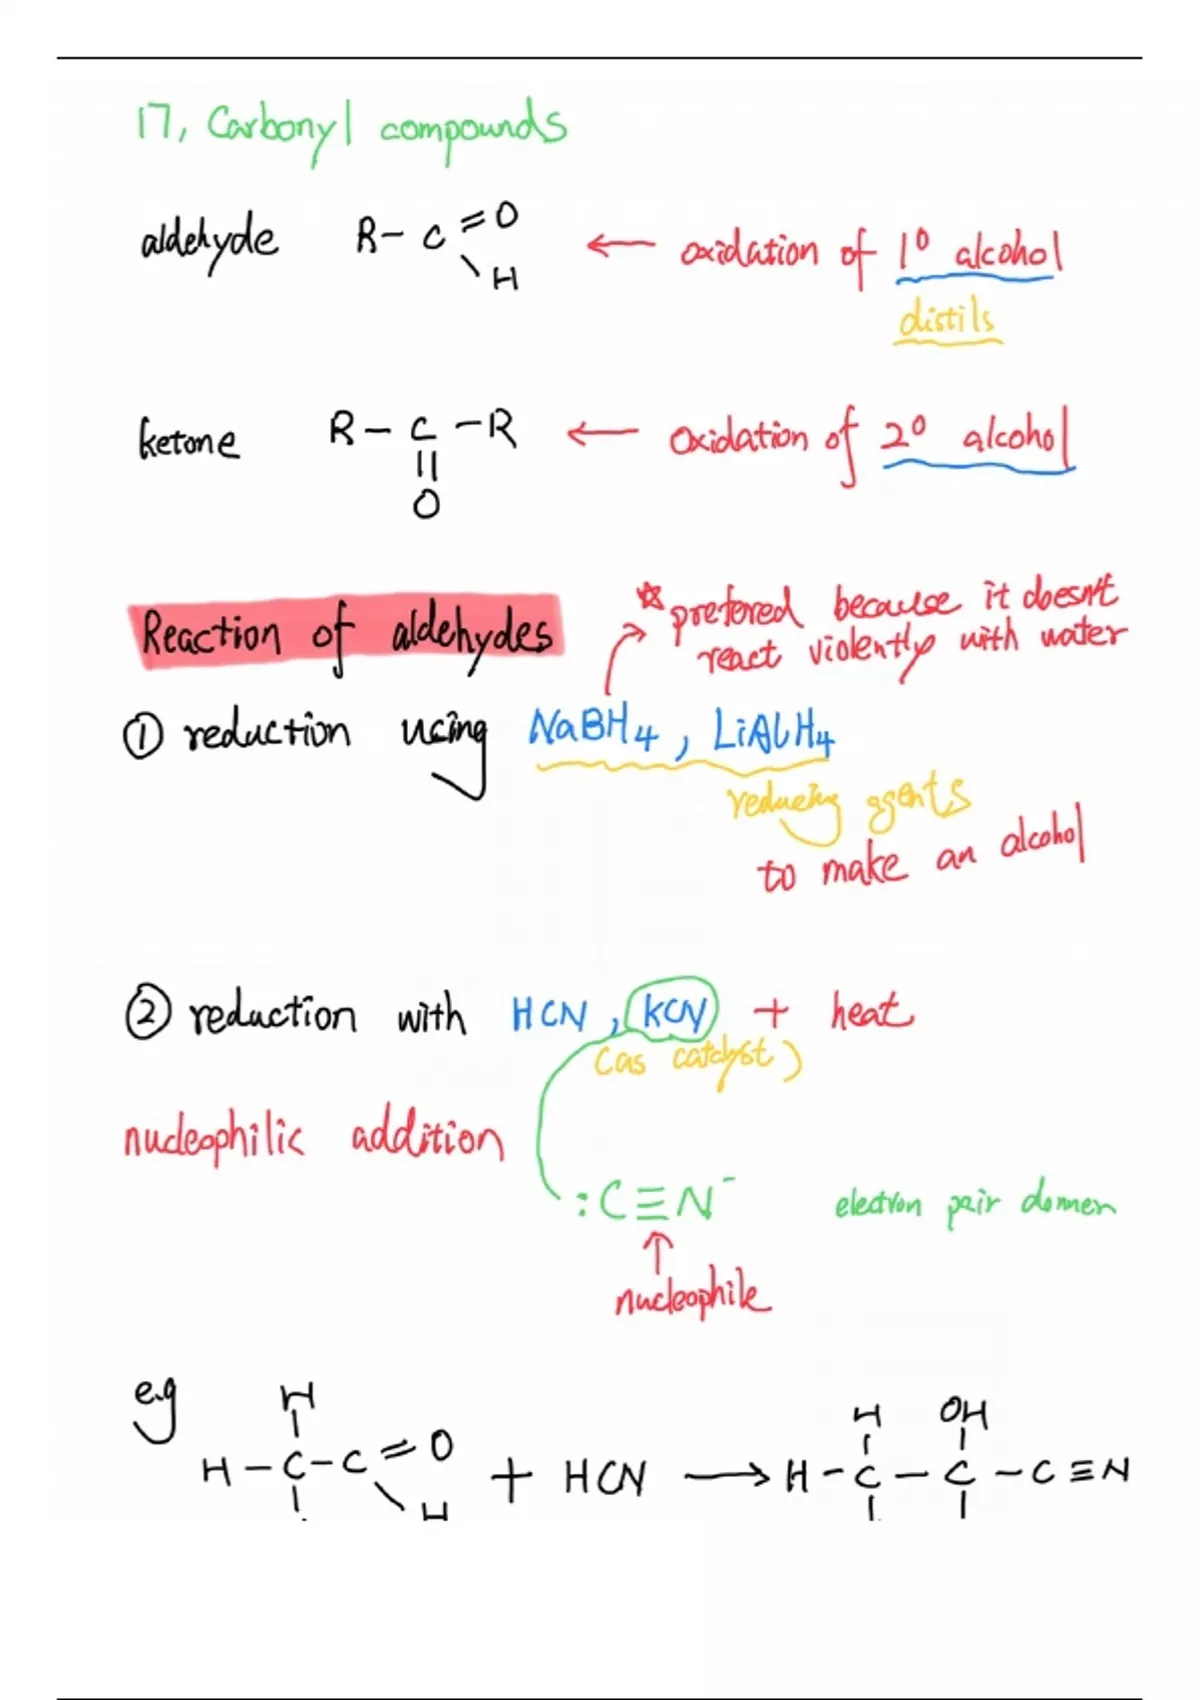 17, Carbonyl compounds
aldehyde R-C=O ← oxidation of 1° alcohol
\H
distils
ketone R-C-R ← oxidation of 2° alcohol
||
O
☆ prefered because it doesn't
react violently with water
Reaction of aldehydes
① reduction using NaBH4, LiAlH4
reducing agents
to make an alcohol
② reduction with HCN, KCN + heat
(as catalyst)
nucleophilic addition
:C≡N⁻ electron pair
↑
nucleophile
e.g
H H OH
H-C-C=O + HCN → H-C-C-C≡N
\H